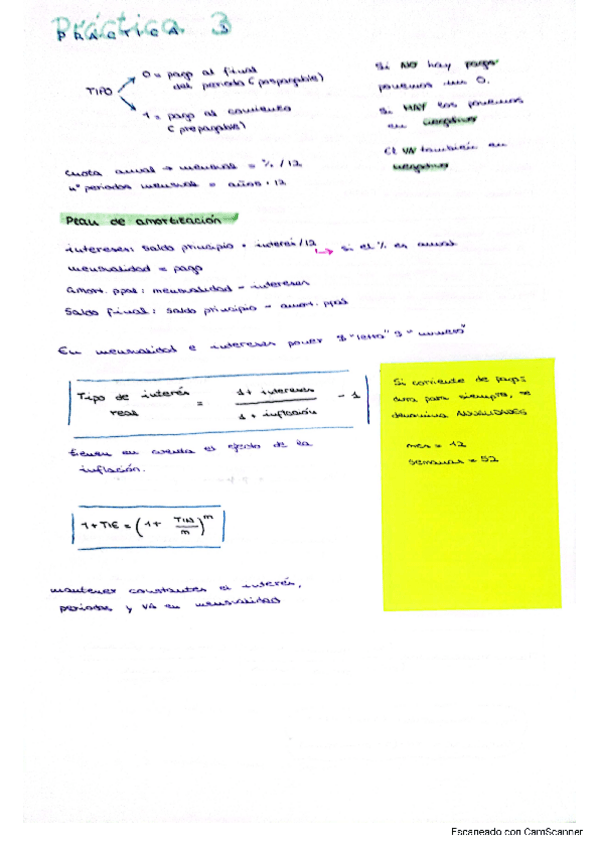 Práctica 3
PRÁCTICA 3
TIPO
0 = pago al final
del periodo (pospagable)
1 = pago al comienzo
(prepagable)
Si NO hay pagos
ponemos un 0.
Si HAY los ponemos
en negativo
El VA también en
negativo
cuota anual → mensual = % / 12
nº periodos mensual = años · 12
Plan de amortización
intereses: saldo principio · interés/12 → si el % es anual
mensualidad = pago
Amort. ppal: mensualidad - intereses
Saldo final: saldo principio - amort. ppal
En mensualidad e intereses poner $ "letra" $ "numero"
Tipo de interés real = 1 + intereses / 1 + inflación - 1
tienen en cuenta el efecto de la
inflación.
1 + TIE = (1 + TIN/m)^m
mantener constantes el interés,
periodos y VA en mensualidad
Si corriente de pagos
dura para siempre, se
denomina ANUALIDADES
mes = 12
semanas = 52
Escaneado con CamScanner